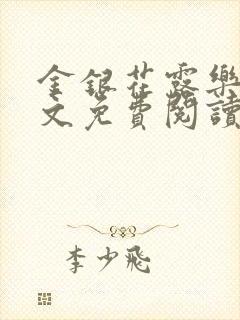 金銀花露樂
文免費閱讀
李少飛